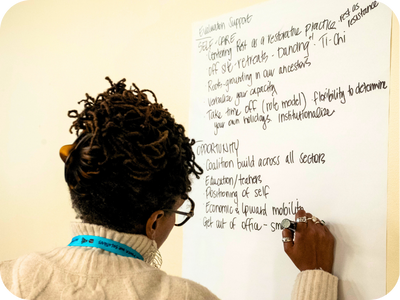 Evaluation Support
SELF-CARE
Centering Rest as a restorative practice - rest as resistance
Off site - retreats - Dancing - Ti-Chi
Root-grounding in our ancestors
your capacity
Take time off (role model) flexibility to determine
your own holidays institutionalize
OPPORTUNITY
Coalition build across all sectors
Education/teachers
Positioning of self
Economic & Upward mobility
Get out of office - sm